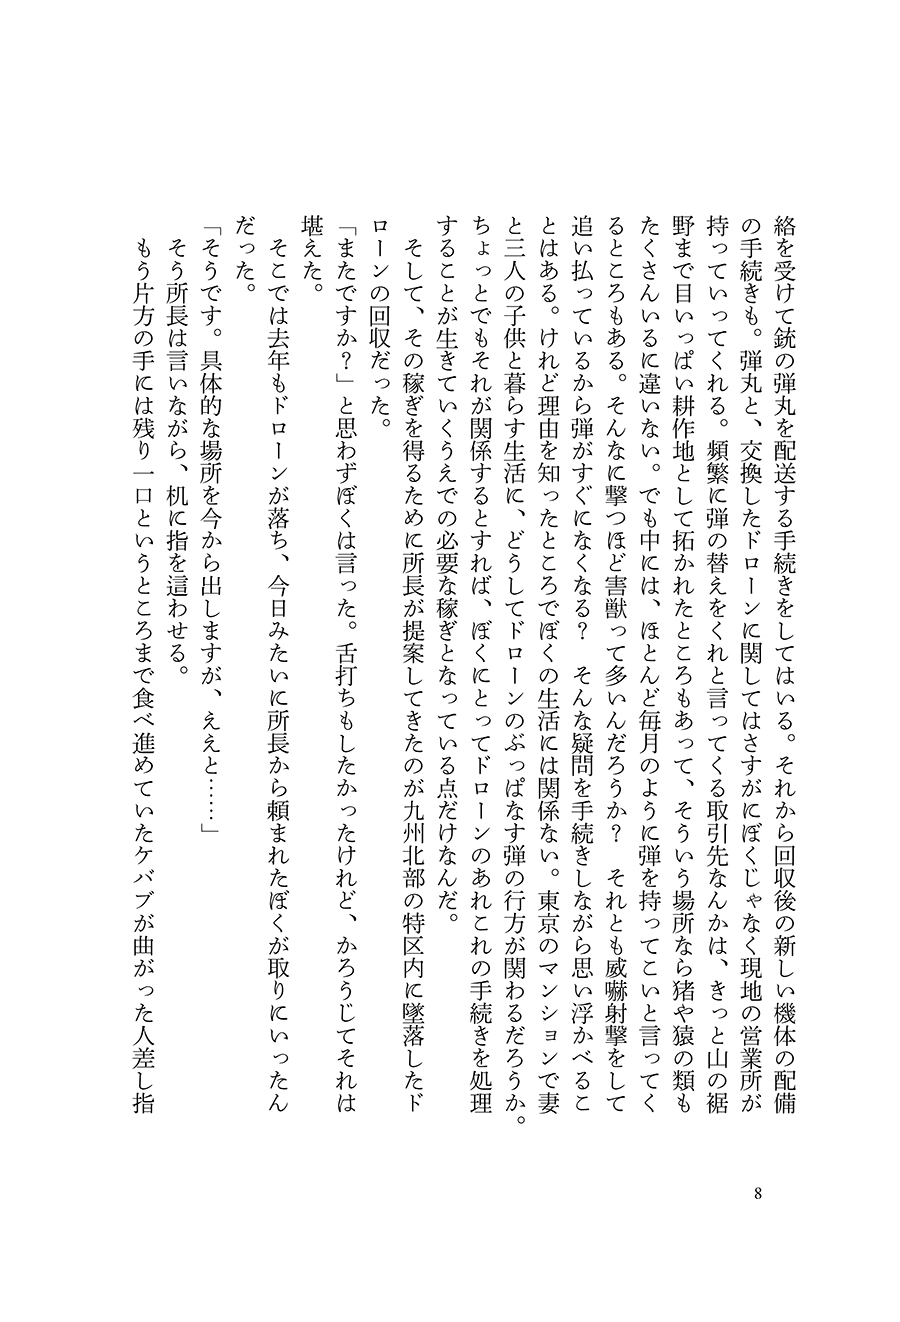 絡を受けて銃の弾丸を配送する手続きをしてはいる。それから回収後の新しい機体の配備
の手続きも。弾丸と、交換したドローンに関してはさすがにぼくじゃなく現地の営業所が
持っていってくれる。頻繁に弾の替えをくれと言ってくる取引先なんかは、きっと山の裾
野まで目いっぱい耕作地として拓かれたところもあって、そういう場所なら猪や猿の類も
たくさんいるに違いない。でも中には、ほとんど毎月のように弾を持ってこいと言ってく
るところもある。そんなに撃つほど害獣って多いんだろうか？　それとも威嚇射撃をして
追い払っているから弾がすぐになくなる？　そんな疑問を手続きしながら思い浮かべるこ
とはある。けれど理由を知ったところでぼくの生活には関係ない。東京のマンションで妻
と三人の子供と暮らす生活に、どうしてドローンのぶっぱなす弾の行方が関わるだろうか。
ちょっとでもそれが関係するとすれば、ぼくにとってドローンのあれこれの手続きを処理
することが生きていくうえでの必要な稼ぎとなっている点だけなんだ。
　そして、その稼ぎを得るために所長が提案してきたのが九州北部の特区内に墜落したド
ローンの回収だった。
「またですか？」と思わずぼくは言った。舌打ちもしたかったけれど、かろうじてそれは
堪えた。
　そこでは去年もドローンが落ち、今日みたいに所長から頼まれたぼくが取りにいったん
だった。
「そうです。具体的な場所を今から出しますが、ええと……」
　そう所長は言いながら、机に指を這わせる。
　もう片方の手には残り一口というところまで食べ進めていたケバブが曲がった人差し指
8